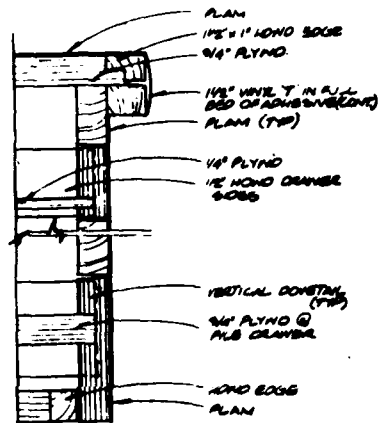 PLAM
1 1/2" x 1" HDWD EDGE
3/4" PLYWD.
1 1/2" VINYL 'T' IN FULL
BED OF ADHESIVE (CONT)
PLAM (TYP)
1/4" PLYWD
1/2" HDWD DRAWER
SIDES
VERTICAL DOVETAIL
(TYP)
3/4" PLYWD @
FILE DRAWER
HDWD EDGE
PLAM